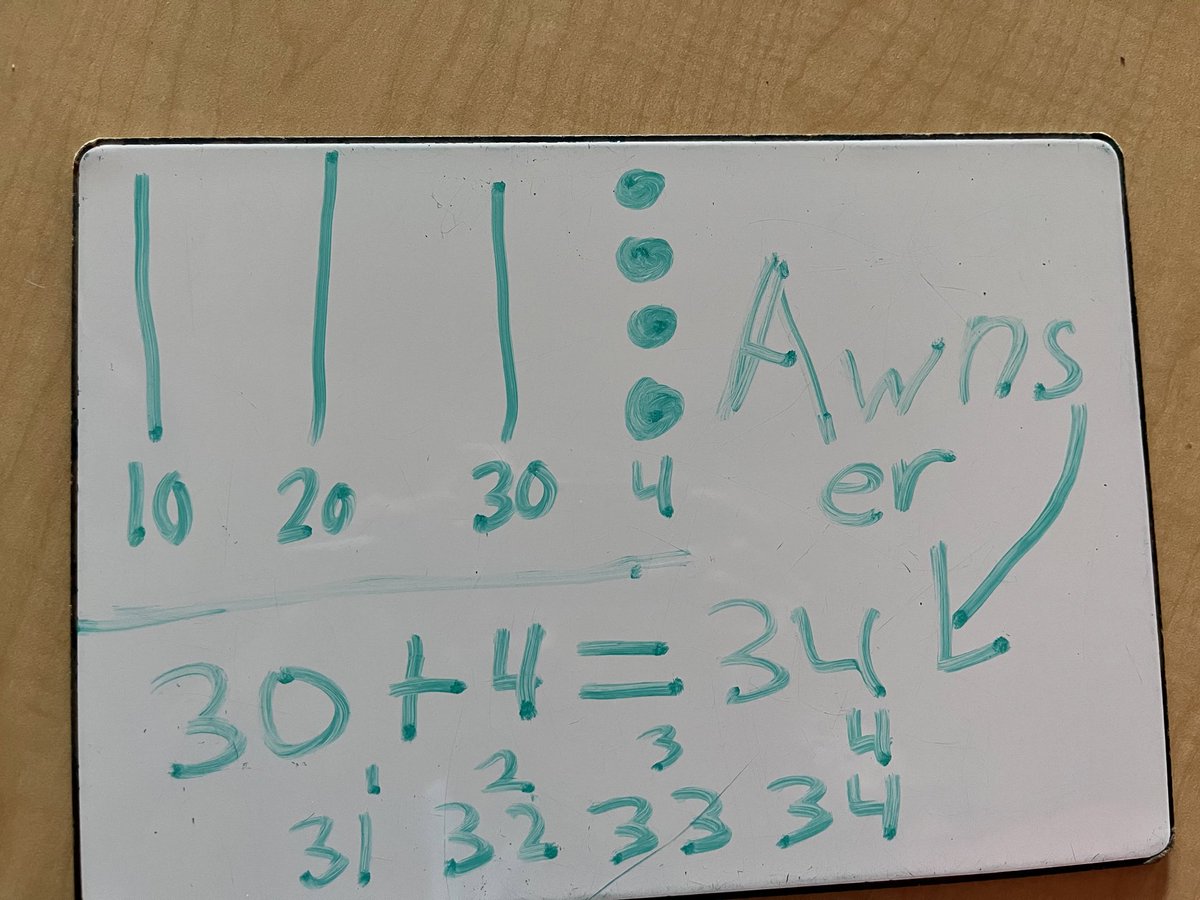 10 20 30 4
Awns
er
30 + 4 = 34
1 2 3 4
31 32 33 34